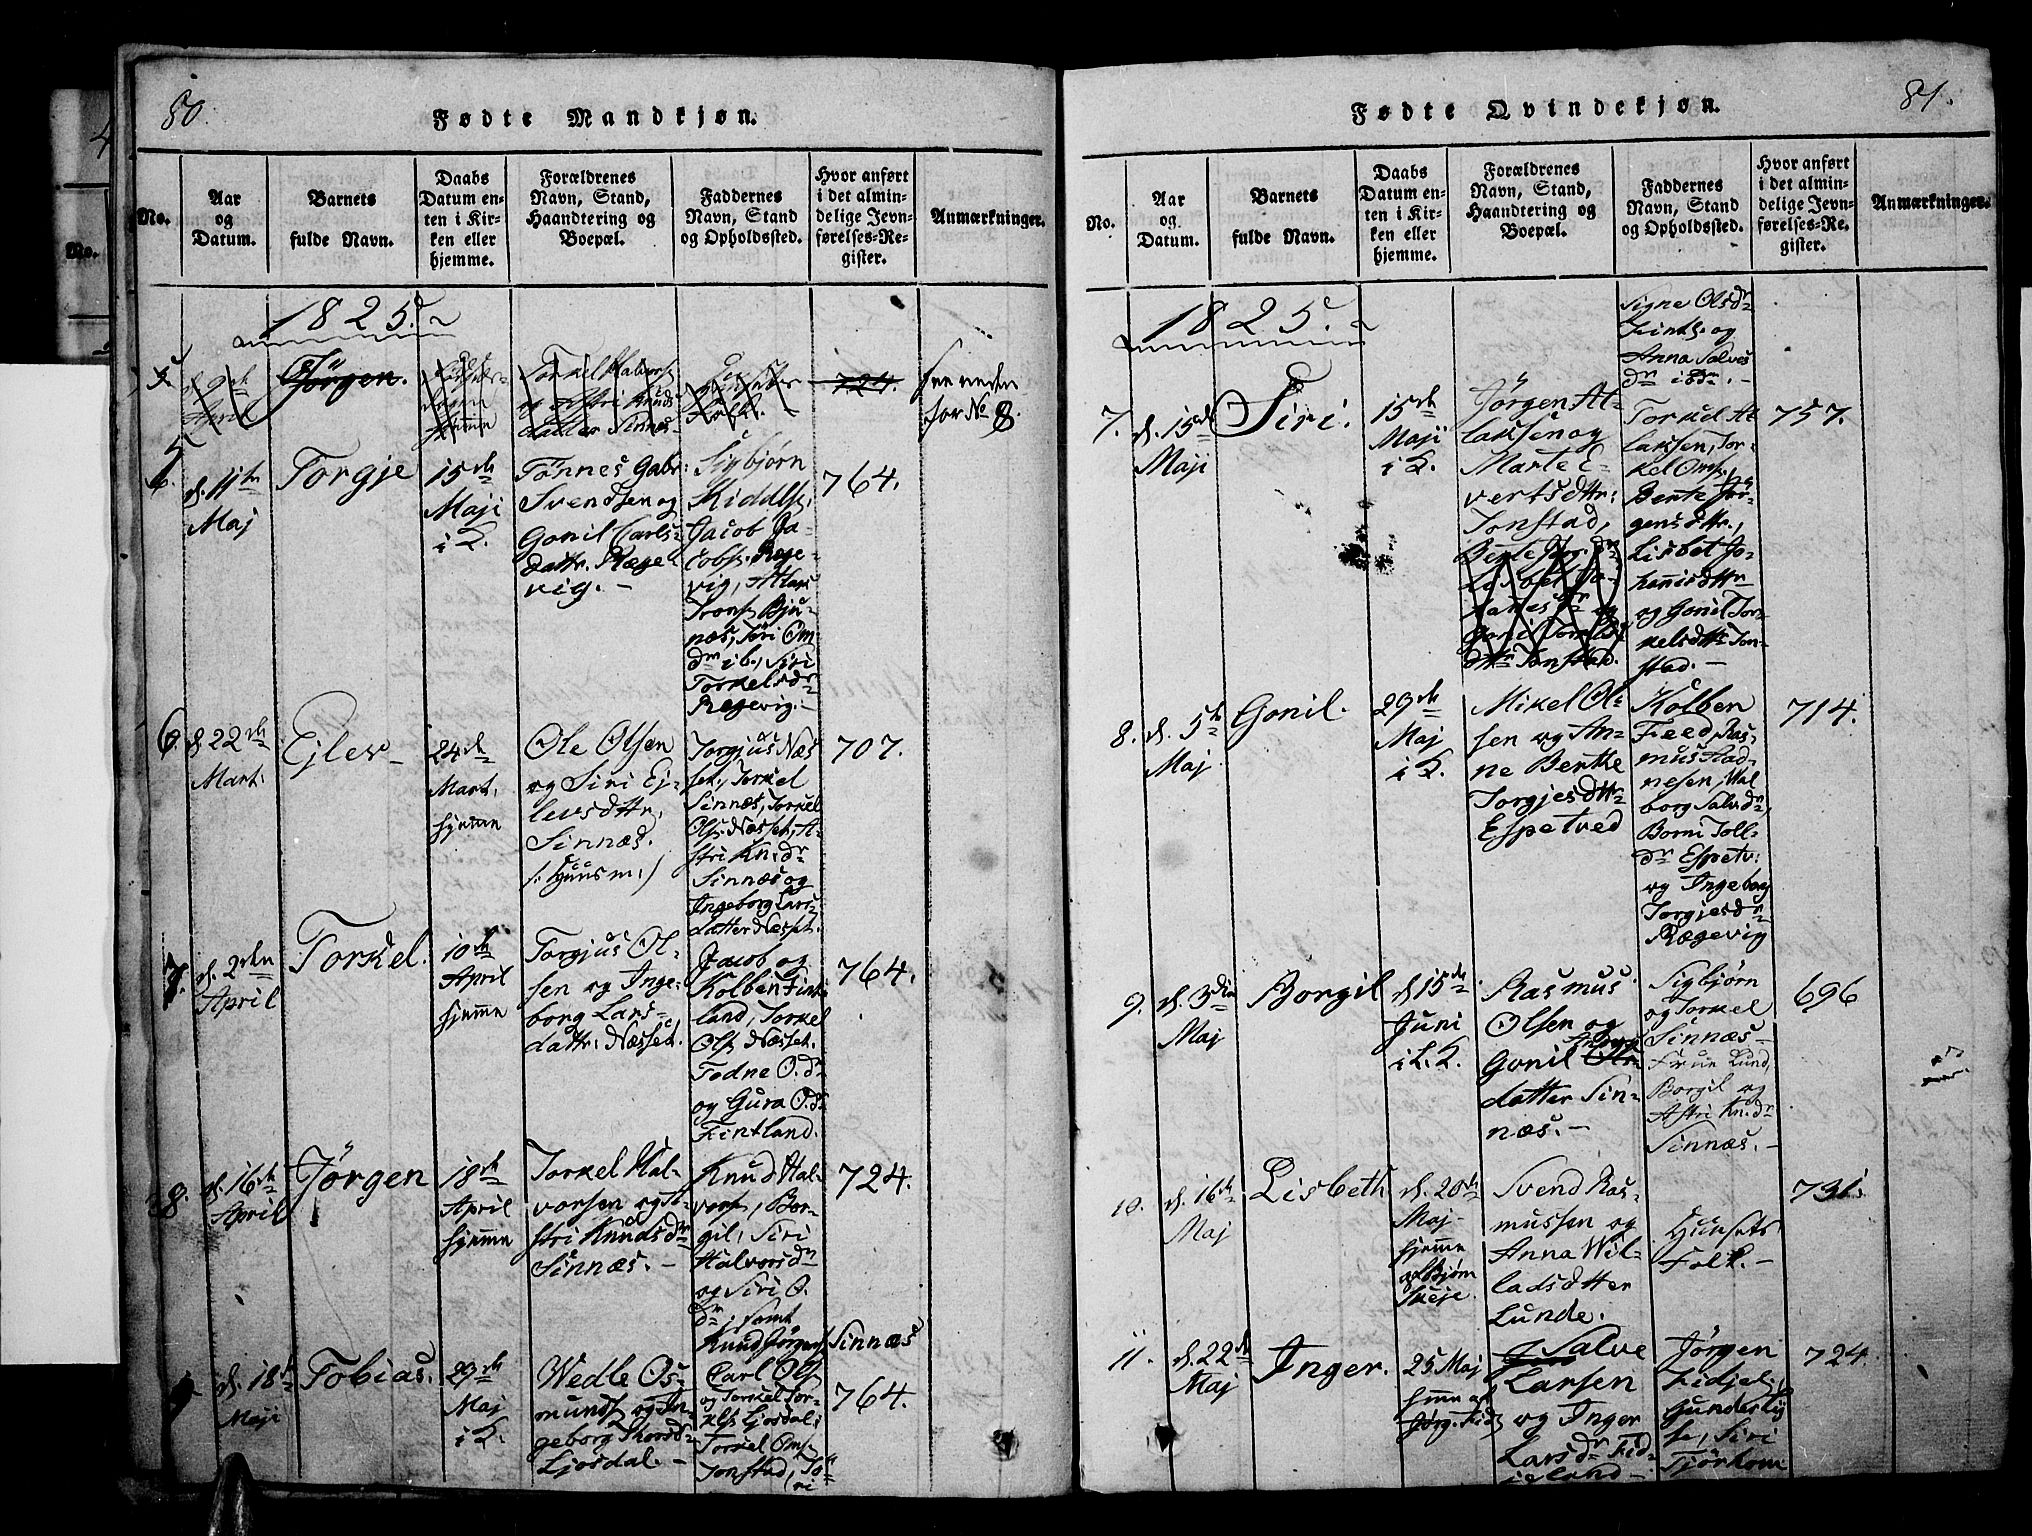 80.
Fødte Mandkjøn.
No.
Aar
og
Datum.
Barnets
fulde Navn.
Daabs
Datum en-
ten i Kir-
ken eller
hjemme.
Forældrenes
Navn, Stand,
Haandtering og
Boepæl.
Faddernes
Navn, Stand
og Opholdssted.
Hvor anført
i det almin-
delige Jevn-
førelses-Re-
gister.
Anmærkninger.
1825.
5.
April
Jørgen.
hjemme
Torkel Halvors
og Astri Knuds
datter Sinnes
Folk.
724.
see neden
for No 8.
6.
d. 11te
Maj
Torgje
15de
Maji
i K.
Tønnes Gabr:
Svendsen og
Gonil Carls-
dattr. Rege-
vig. -
Sigbjørn
Kiddels:
Jacob Ja-
cobs. Rege-
vig, Atlag
Trons. Bju-
næs, Siri Om
dr ib., Siri
Torkelsdr
Regevig. -
764.
6.
d. 22de
Mart:
Ejlev -
24de
Mart.
hjemme
Ole Olsen
og Siri Ej-
levsdttr,
Sinnæs.
/: Huusm:/
Torgjus Næs
set, Torkel
Sinnæs, Torkel
Ols. Næsset, A-
stri Kn:dr
Sinnæs og
Ingeborg Lars
datter Næsset.
707.
7.
d. 2den
April
Torkel.
10de
April
hjemme
Torgjus Ol-
sen og Inge-
borg Lars-
dattr: Næsset.
Jacob og
Kolben Fint-
land, Torkel
Ols. Næsset.
Todne O.dr
og Gura O.dr
Fintland.
764.
8.
d. 16de
April
Jørgen
18de
April
hjemme
Torkel Hal-
vorsen og A-
stri Knudsdr
Sinnæs. -
Knud Hal-
vors., Bor-
gil, Siri
Halvorsdr
og Siri O.
dr, samt
Knud Jørgens. Sinnæs
724.
d. 18de
Maji
Tobias.
29de
Maj
i K.
Wedle Os-
munds. og In-
geborg Thorsd-
Ljosdal. -
Carl Ols.
og Torkel Tor-
kels. Ljosdal,
Torkel Oms.
Tonstad, To-
ri
764.
81.
Fødte Qvindekjøn.
No.
Aar
og
Datum.
Barnets
fulde Navn.
Daabs
Datum en-
ten i Kir-
ken eller
hjemme.
Forældrenes
Navn, Stand,
Haandtering og
Boepæl.
Faddernes
Navn, Stand
og Opholdssted.
Hvor anført
i det almin-
delige Jevn-
førelses-Re-
gister.
Anmærkninger.
1825.
Signe Olsdr
Fintl. og
Anna Salves
dr ibdm. -
7.
d. 15de
Maji
Siri.
15de
Maji
i K.
Jørgen At-
laksen og
Marte E-
vertsdttr:
Tonstad,
Torkel At
laksen, Tor-
kel Oms.,
Bente Jør-
gensdttr.,
Lisbet Jo-
hannisdttr
og Gonil Tor-
kelsdttr Ton-
stad. -
757.
8.
d. 5te
Maj
Gonil.
29de
Maj
i K.
Mikel Ol-
sen og An-
ne Bertke
Torgjesdttr
Espetved
Kolben
Feed, Ras-
mus Aad-
nesen, Wal
borg Salvdr,
Borni Toll-
dr Espetv:
og Ingeborg
Torgjesdr
Rægevig
714.
9.
d. 3die
Maj
Borgil
d. 15de
Juni
i L. K.
Rasmus
Olsen og
Gonil
datter Sin-
næs. -
Sigbjørn
og Torkel
Sinnæs -
Frue Lund,
Borgil og
Astri Kn:dr
Sinnæs. -
696
10.
d. 16de
Maj
Lisbeth
d. 20de
Maj -
hjemme
af Bjørn
Skeje.
Svend Ras-
mussen og
Anna Wil-
ladsdtter
Lunde.
Huusets
Folk. -
731.
11.
d. 22de
Maj
Inger.
25 Maj
hjme af
Jørg. Fid
Salve
Larsen
og Inger
Larsdr Fid-
jeland -
Jørgen
Fidjel.,
Gunder Lis
Siri
Tjørhom
724.